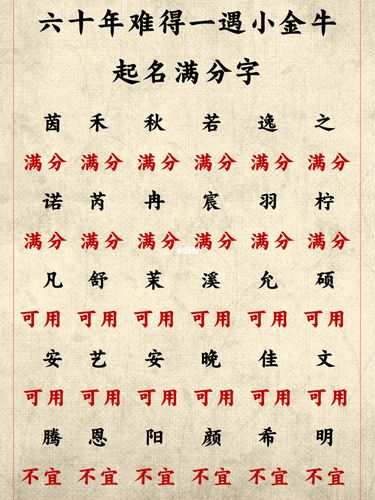 六十年难得一遇小金牛
起名满分字
茵 禾 秋 若 逸 之
满分 满分 满分 满分 满分 满分
诺 芮 冉 宸 羽 柠
满分 满分 满分 满分 满分 满分
凡 舒 茉 溪 允 硕
可用 可用 可用 可用 可用 可用
安 艺 安 晚 佳 文
可用 可用 可用 可用 可用 可用
腾 恩 阳 颜 希 明
不宜 不宜 不宜 不宜 不宜 不宜